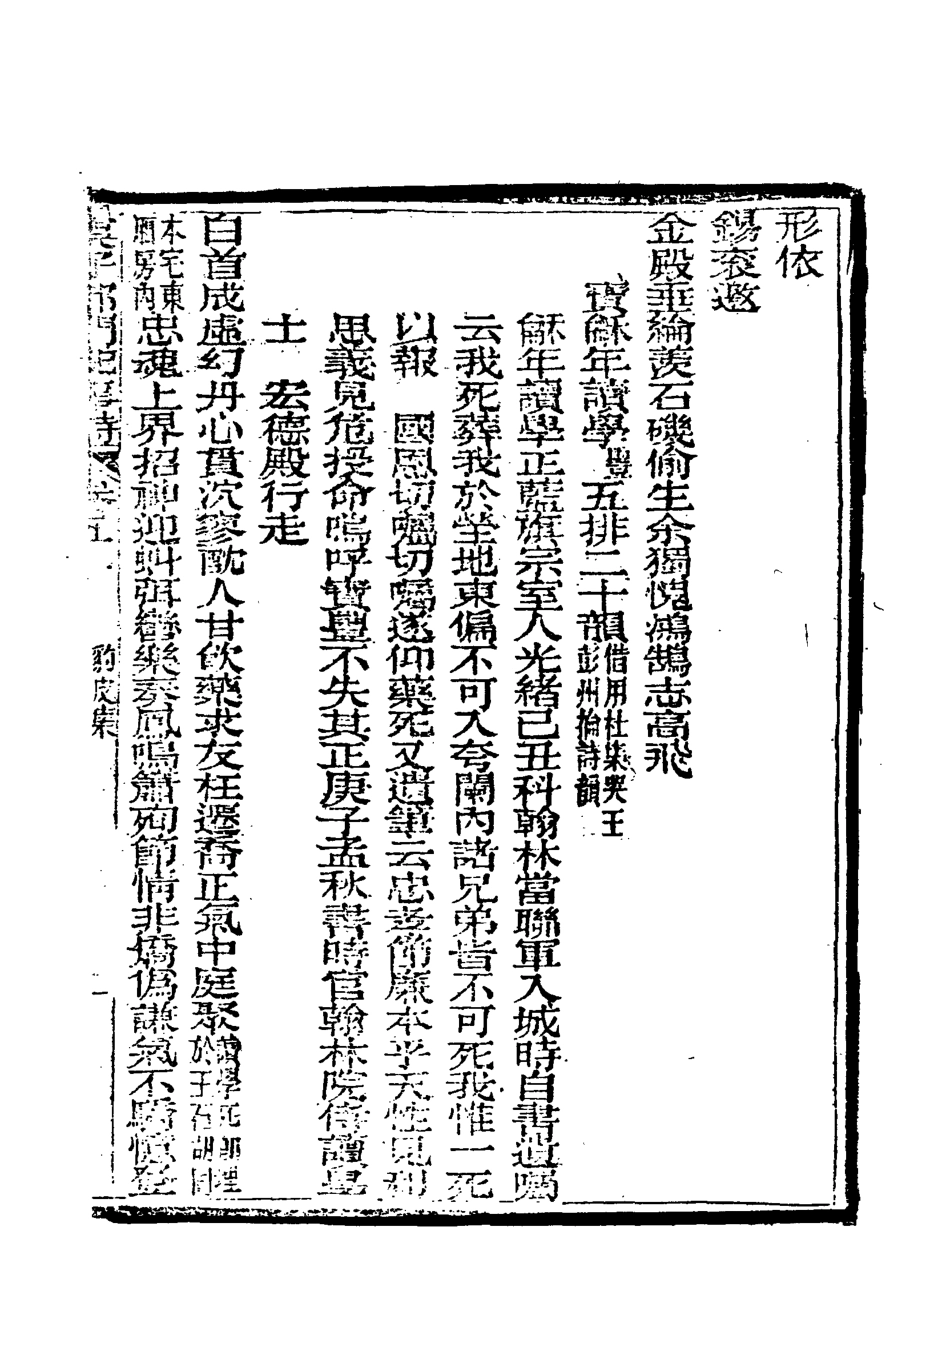 形依
錫衮遨
金殿垂綸羨石磯偷生余獨愧鴻鵠志高飛
寶龢年讀學豐五排二十韻借用杜集哭王彭州掄詩韻
龢年讀學正藍旗宗室人光緒己丑科翰林當聯軍入城時自書遺囑
云我死葬我於塋地東偏不可入夸闌內諸兄弟皆不可死我惟一死
以報　國恩切囑切囑遂仰藥死又遺筆云忠孝節廉本乎天性見利
思義見危授命嗚呼寶豐不失其正庚子孟秋書時官翰林院侍讀學
士　宏德殿行走
白首成虛幻丹心貫泬寥酖人甘飲藥求友枉遷喬正氣中庭聚讀學死即殯於王石胡同
本宅東廂房內忠魂上界招神迎虯弭轡樂奏鳳鳴簫殉節情非矯偽謙氣不驕憶登
庚子都門紀事詩　卷五　豹皮集
一